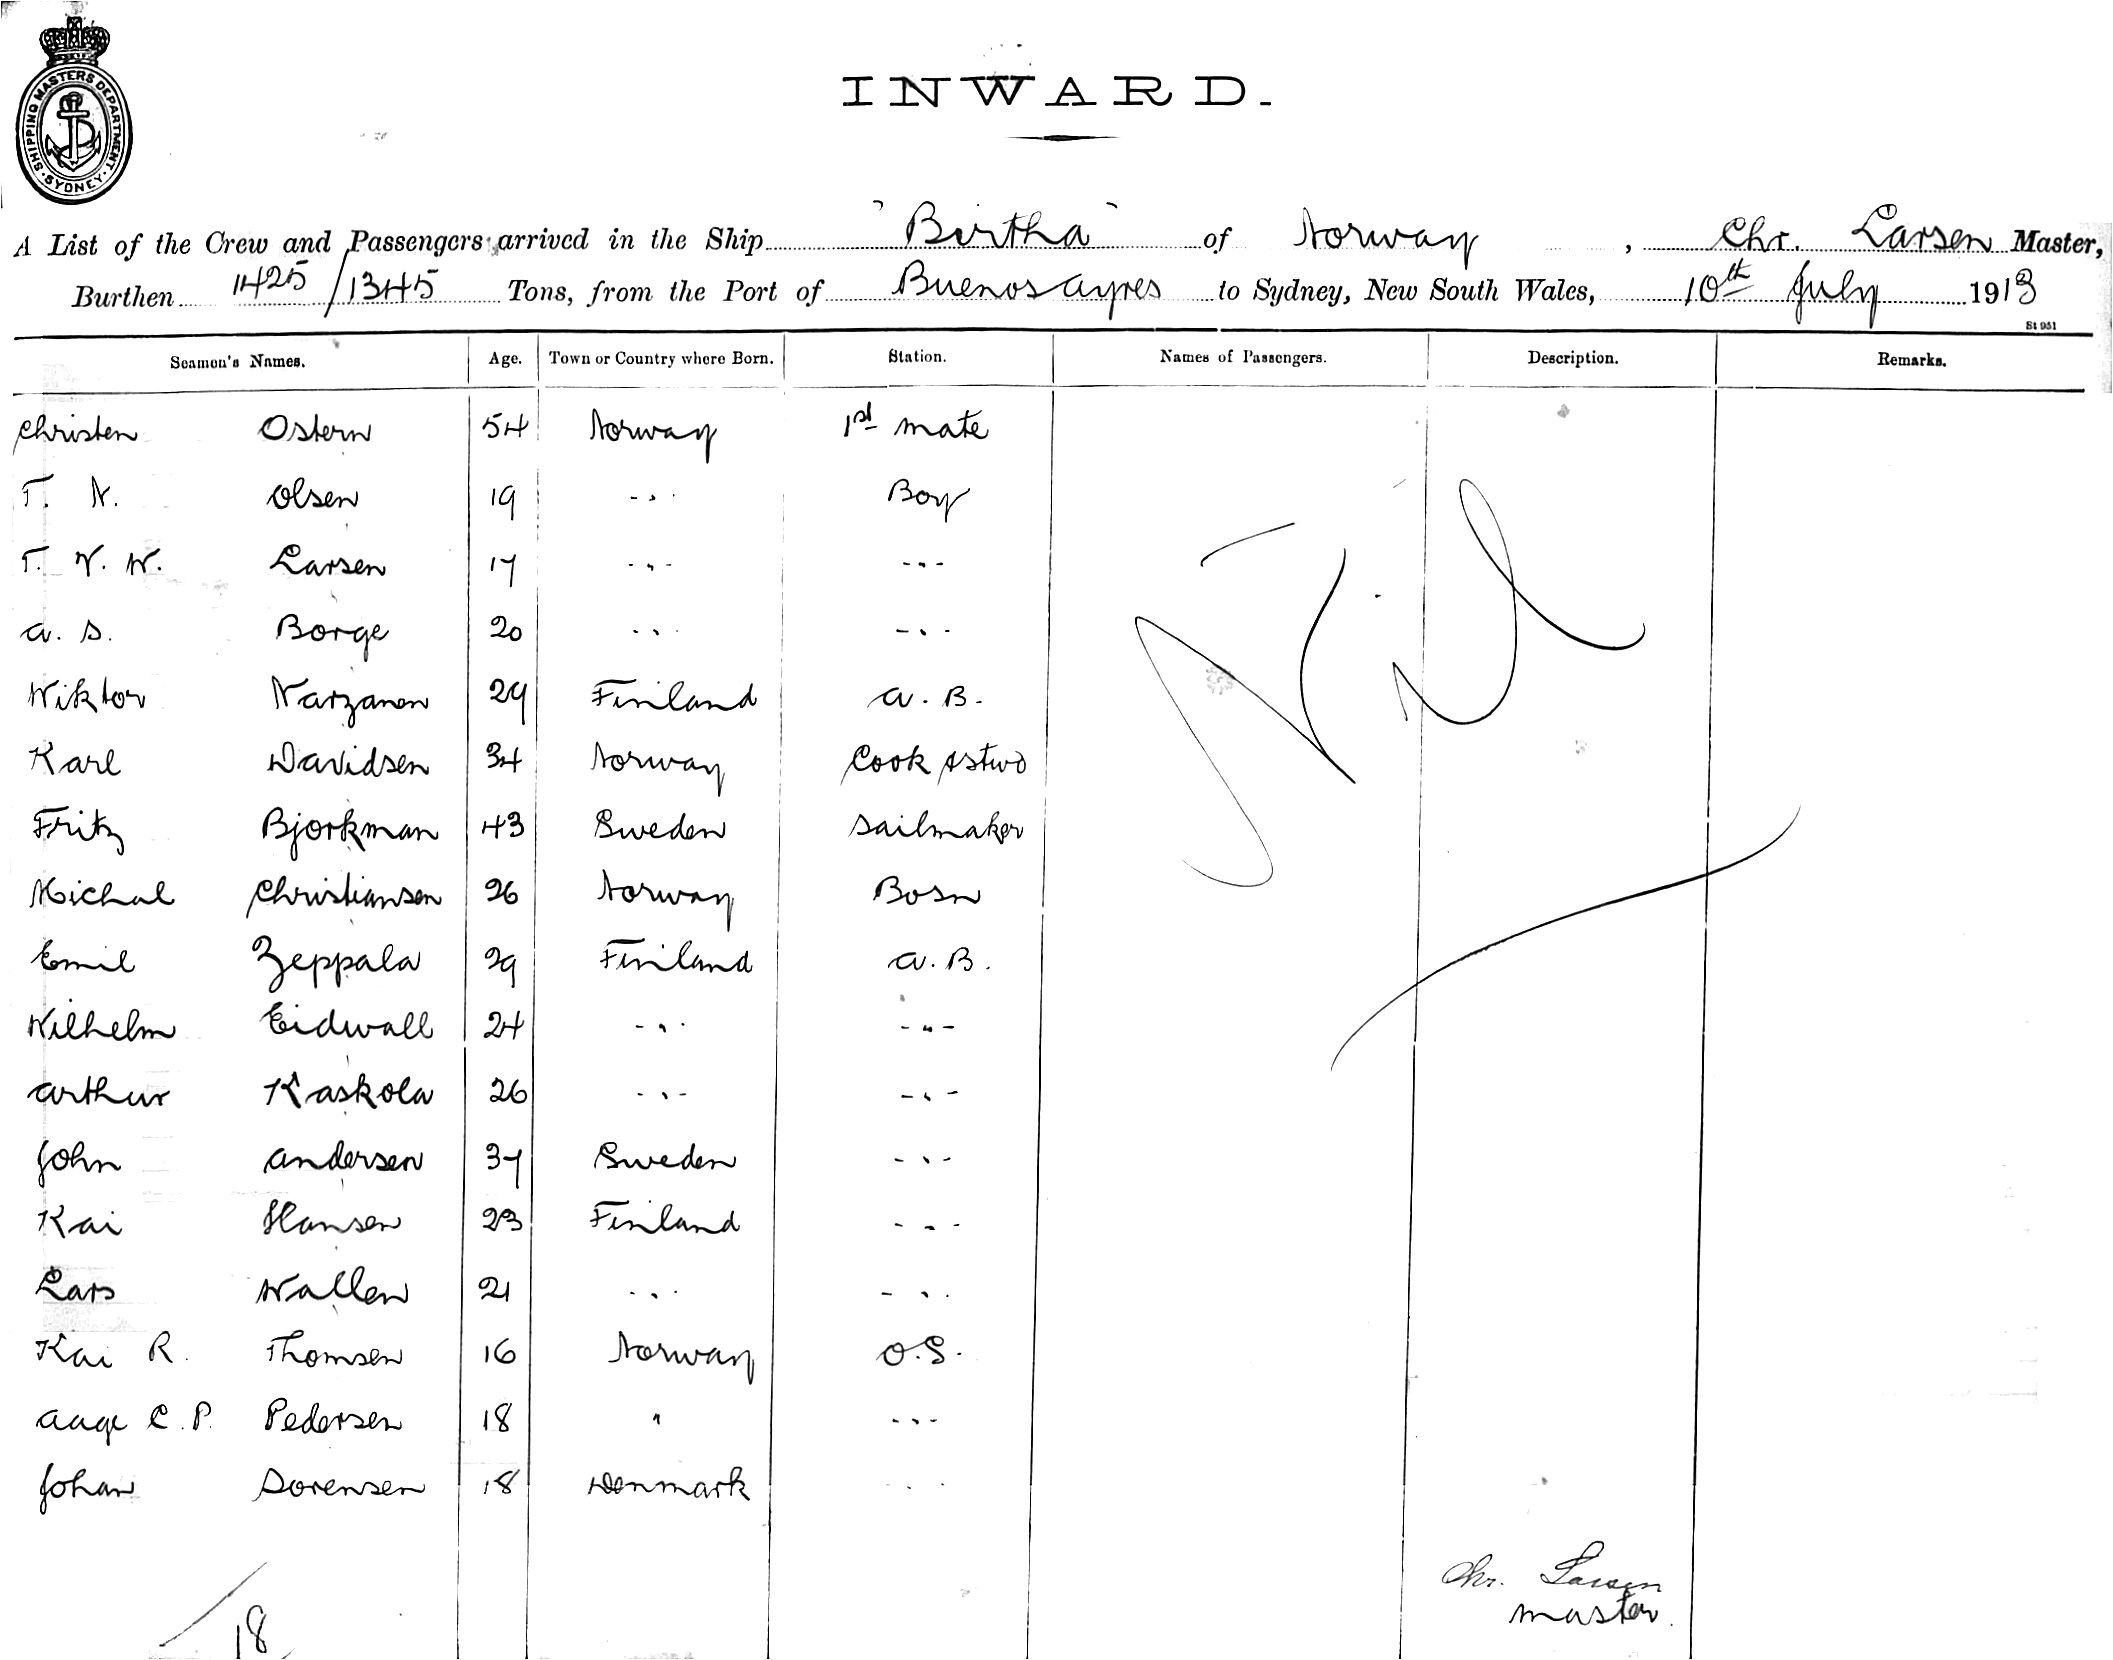 SHIPPING MASTERS DEPARTMENT · SYDNEY ·
INWARD.
A List of the Crew and Passengers arrived in the Ship "Birtha" of Norway, Chr. Larsen Master,
Burthen 1425/1345 Tons, from the Port of Buenos Ayres to Sydney, New South Wales, 10th July 1913
St 951
Seamen's Names. Age. Town or Country where Born. Station. Names of Passengers. Description. Remarks.
Christen Ostern 54 Norway 1st mate
T. N. Olsen 19 - " - Boy
T. W. W. Larsen 17 - " - - " -
A. S. Borge 20 - " - - " -
Wiktor Narzanen 29 Finland A. B.
Karl Davidsen 34 Norway Cook & stwd
Fritz Bjorkman 43 Sweden Sailmaker
Michal Christiansen 26 Norway Bosn
Emil Zeppala 29 Finland A. B.
Wilhelm Eidwall 24 - " - - " -
Arthur Kaskola 26 - " - - " -
John Andersen 37 Sweden - " -
Kai Hansen 23 Finland - " -
Lars Wallen 21 - " - - " -
Kai R. Thomsen 16 Norway O.S.
Aage C. P. Pedersen 18 " - " -
Johan Sorensen 18 Denmark - " -
Nil
Chr. Larsen
Master.
18